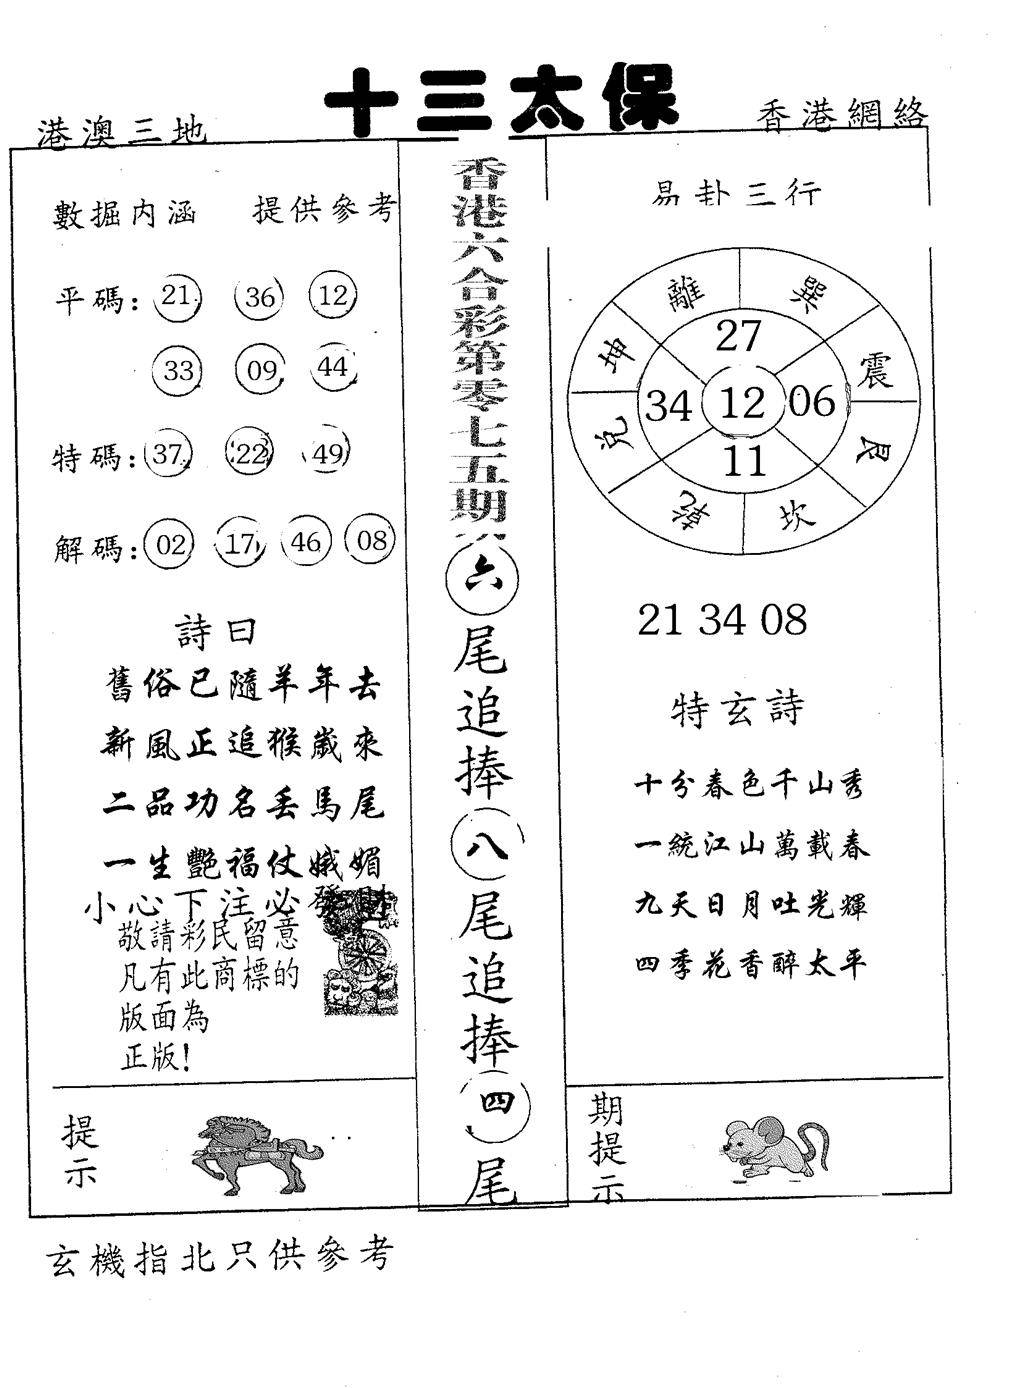 十三太保
港澳三地
香港網絡
數据内涵 提供參考
平碼: 21 36 12
33 09 44
特碼: 37 22 49
解碼: 02 17 46 08
詩曰
舊俗已隨羊年去
新風正追猴歲來
二品功名丢馬尾
一生艷福仗娥媚
小心下注必發財
敬請彩民留意
凡有此商標的
版面為
正版!
提示
香港六合彩第零七五期
六尾追捧八尾追捧四尾
易卦三行
離 巽
坤 震
兌 艮
乾 坎
27
34 12 06
11
21 34 08
特玄詩
十分春色千山秀
一統江山萬載春
九天日月吐光輝
四季花香醉太平
期提示
玄機指北只供參考